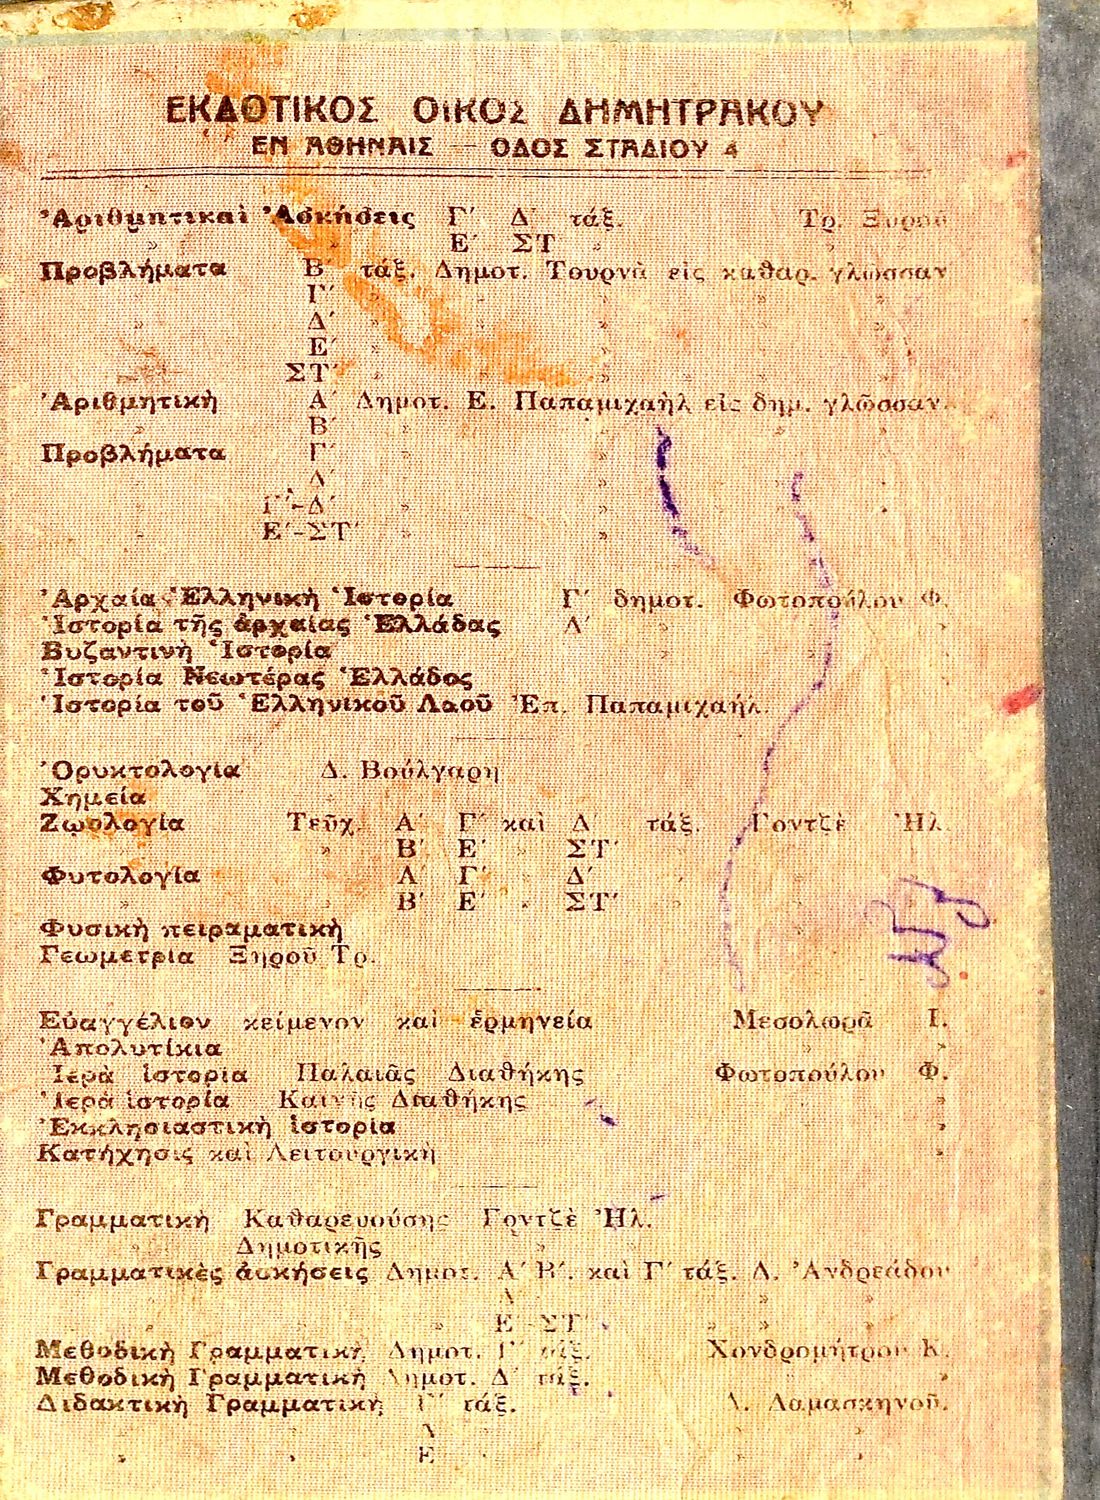 ΕΚΔΟΤΙΚΟΣ ΟΙΚΟΣ ΔΗΜΗΤΡΑΚΟΥ
ΕΝ ΑΘΗΝΑΙΣ — ΟΔΟΣ ΣΤΑΔΙΟΥ 4
Ἀριθμητικαὶ Ἀσκήσεις Γ′ Δ′ τάξ. Τρ. Ξηροῦ
» » Ε′ ΣΤ′ » »
Προβλήματα Β′ τάξ. Δημοτ. Τουρνᾶ εἰς καθαρ. γλῶσσαν
» Γ′ » » » » »
» Δ′ » » » » »
» Ε′ » » » » »
» ΣΤ′ » » » » »
Ἀριθμητικὴ Α′ Δημοτ. Ε. Παπαμιχαὴλ εἰς δημ. γλῶσσαν.
» Β′ » » »
Προβλήματα Γ′ » » »
» Δ′ » » »
» Γ′-Δ′ » » »
» Ε′-ΣΤ′ » » »
Ἀρχαία Ἑλληνικὴ Ἱστορία Γ′ δημοτ. Φωτοπούλου Φ.
Ἱστορία τῆς ἀρχαίας Ἑλλάδας Δ′ » » »
Βυζαντινὴ Ἱστορία
Ἱστορία Νεωτέρας Ἑλλάδος
Ἱστορία τοῦ Ἑλληνικοῦ Λαοῦ Ἐπ. Παπαμιχαήλ.
Ὀρυκτολογία Δ. Βούλγαρη
Χημεία
Ζωολογία Τεῦχ. Α′ Γ′ καὶ Δ′ τάξ. Γοντζὲ Ἠλ.
» » Β′ Ε′ » ΣΤ′
Φυτολογία Α′ Γ′ Δ′
» » Β′ Ε′ » ΣΤ′
Φυσικὴ πειραματικὴ
Γεωμετρία Ξηροῦ Τρ.
Εὐαγγέλιον κείμενον καὶ ἑρμηνεία Μεσολωρᾶ Ι.
Ἀπολυτίκια » »
Ἱερὰ ἱστορία Παλαιᾶς Διαθήκης Φωτοπούλου Φ.
Ἱερὰ ἱστορία Καινῆς Διαθήκης » »
Ἐκκλησιαστικὴ ἱστορία » »
Κατήχησις καὶ Λειτουργικὴ » »
Γραμματικὴ Καθαρευούσης Γοντζὲ Ἠλ.
» Δημοτικῆς »
Γραμματικὲς ἀσκήσεις Δημοτ. Α′ Β′. καὶ Γ′ τάξ. Δ. Ἀνδρεάδου
» » » Δ′ » » »
» » » Ε′-ΣΤ′ » » »
Μεθοδικὴ Γραμματικὴ Δημοτ. Γ′ τάξ. Χονδρομήτρου Κ.
Μεθοδικὴ Γραμματικὴ Δημοτ. Δ′ τάξ. » »
Διδακτικὴ Γραμματικὴ Γ′ τάξ. Δ. Δαμασκηνοῦ.
» » Δ′ » » »
» » Ε′ » » »